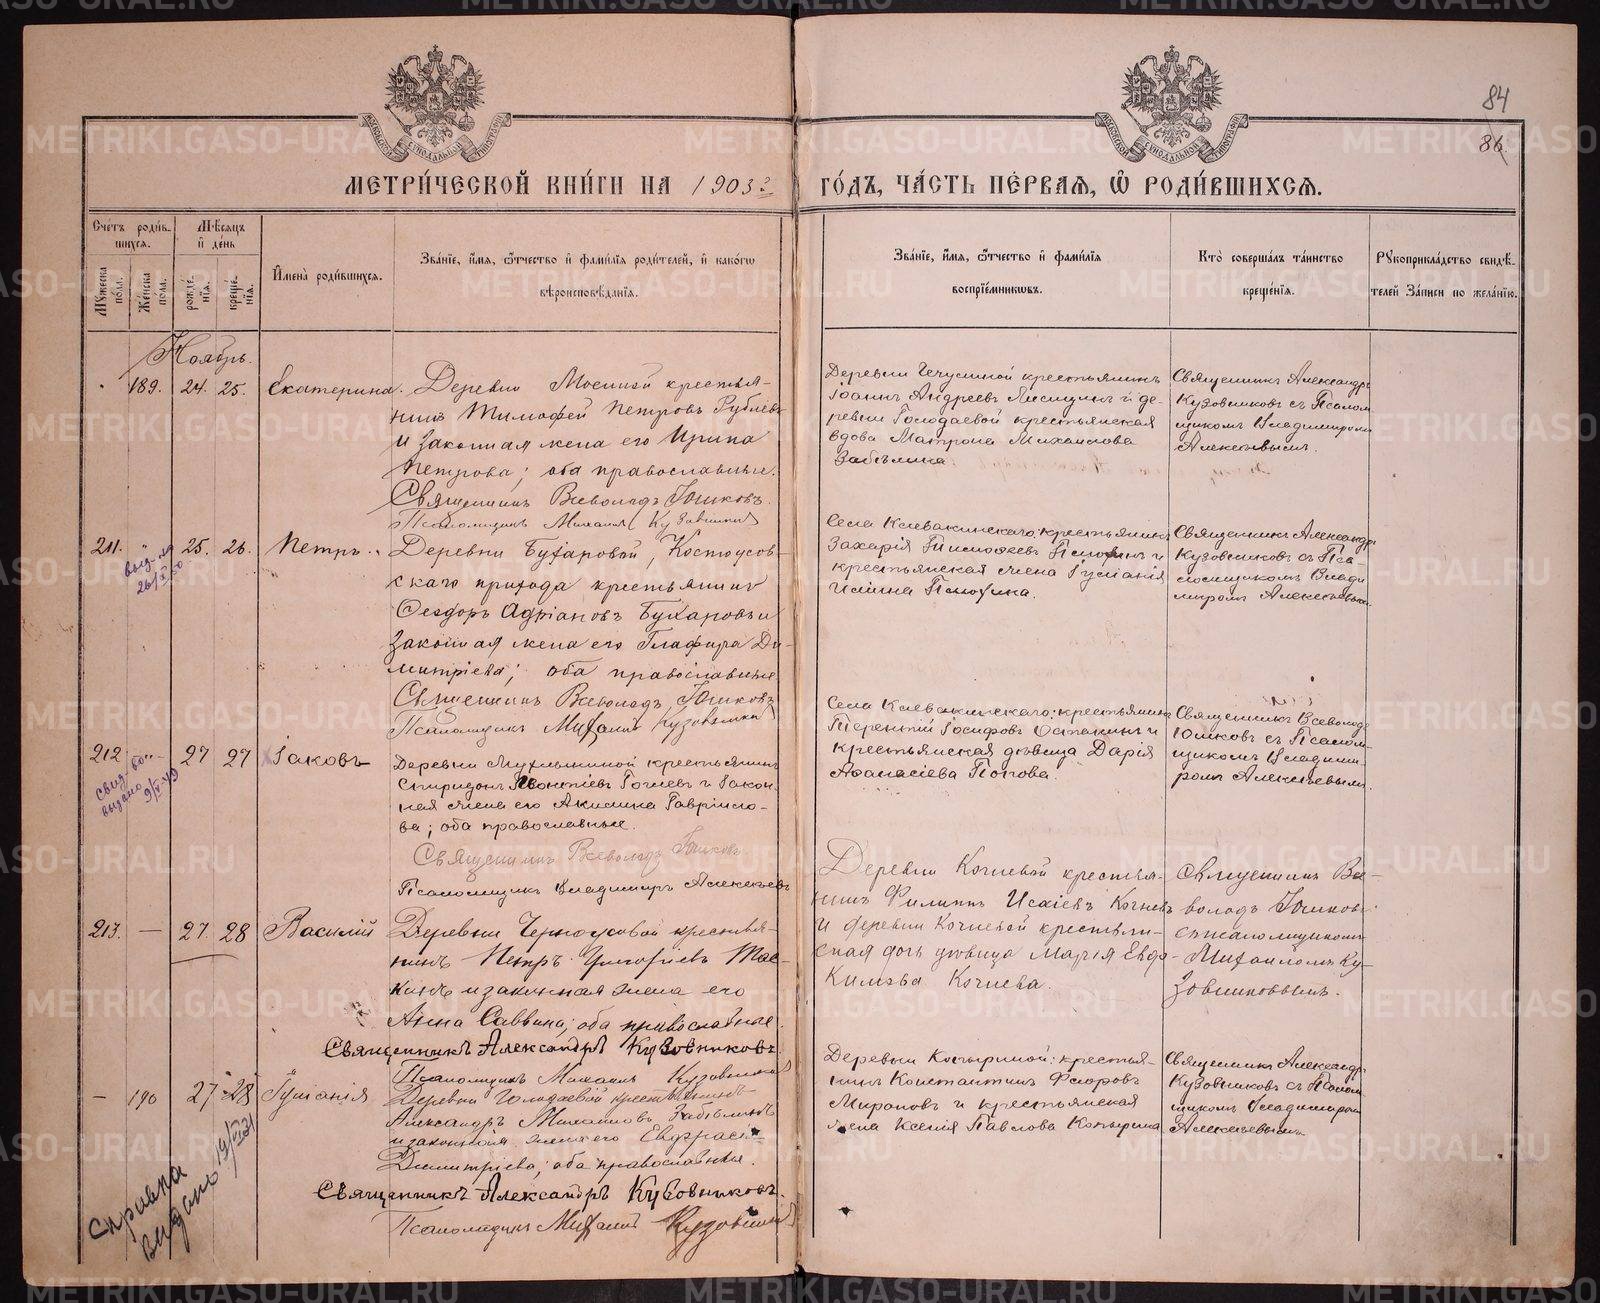 84
86
МЕТРИ́ЧЕСКОЙ КНИ́ГИ НА 1903 г
ГО́ДЪ, ЧА́СТЬ ПЕ́РВАЯ, Ѽ РОДИ́ВШИХСЯ.
Сче́тъ роди́в-
шихся.
Мѣ́сяцъ
и҆ де́нь
Му́жеска по́ла.
Же́нска по́ла.
рожде́-
нїя.
креще́-
нїя.
И҆мена̀ роди́вшихся.
Зва́нїе, и҆́мя, ѻ҆́тчество и҆ фами́лїя роди́телей, и҆ како́гѡ
вѣроисповѣ́данїя.
Зва́нїе, и҆́мя, ѻ҆́тчество и҆ фами́лїя
воспрїе́мникѡвъ.
Кто̀ соверша́лъ та́инство
креще́нїя.
Рꙋкоприкла́дство свидѣ́-
телей За́писи по жела́нїю.
Ноябрь.
189. 24. 25. Екатерина.
Деревни Мосиной крестья-
нинъ Тимофей Петровъ Рублевъ
и законная жена его Ирина
Петрова; оба православные.
Священникъ Всеволодъ Юшковъ.
Псаломщикъ Михаилъ Кузовников
Деревни Чечулиной крестьянинъ
Іоаннъ Андреевъ Лисицинъ и де-
ревни Голодаевой крестьянская
вдова Матрона Михаилова
Забѣлина
Священникъ Александръ
Кузовниковъ съ Псалом-
щикомъ Владимиромъ
Алексѣевымъ.
211. 25. 26. Петръ.
Деревни Бухаровой, Костоусов-
скаго прихода крестьянинъ
Ѳеодоръ Адріановъ Бухаровъ и
законная жена его Глафира Ди-
митріева; оба православные
Священникъ Всеволодъ Юшковъ
Псаломщикъ Михаилъ Кузовников
Села Клевакинскаго: крестьянинъ
Захарія Тимоѳеевъ и
крестьянская жена Іуліанія
Священникъ Александръ
Кузовниковъ съ Пса-
ломщикомъ Влади-
миромъ Алексѣевымъ
212 27 27 Іаковъ
свид. выдано
Деревни крестьянинъ
Спиридонъ Леонтіевъ и закон-
ная жена его Акилина Гавріило-
ва; оба православные.
Священникъ Всеволодъ Юшковъ
Псаломщикъ Владимиръ Алексѣевъ
Села Клевакинскаго: крестьянинъ
Терентій Іосифовъ Останинъ и
крестьянская дѣвица Дарія
Аѳанасіева Попова.
Священникъ Всеволодъ
Юшковъ съ Псалом-
щикомъ Владими-
ромъ Алексѣевымъ.
213. — 27. 28 Василій
Деревни Черноусовой крестья-
нинъ Петръ Григоріевъ
и законная жена его
Анна Саввина; оба православные.
Священникъ Александръ Кузовниковъ.
Псаломщикъ Михаилъ Кузовников
Деревни Кочневой крестья-
нинъ Филиппъ Исаіевъ Кочневъ
и деревни Кочневой крестьян-
ская дочь дѣвица Марія Евдо-
кимова Кочнева.
Священникъ Все-
володъ Юшковъ
съ псаломщикомъ
Михаиломъ Ку-
зовниковымъ.
— 190 27 28 Іуліанія
Деревни Голодаевой крестьянинъ
Александръ Михаиловъ Забѣлинъ
и законная жена его Евфрасі-
Димитріева; оба православные.
Священникъ Александръ Кузовниковъ.
Псаломщикъ Михаилъ Кузовников
Деревни Копыриной: крестья-
нинъ Константинъ Ѳеодоровъ
Мироновъ и крестьянская
жена Ксенія Павлова Копырина
Священникъ Александръ
Кузовниковъ съ Псалом
щикомъ Владимиромъ
Алексѣевымъ
Справка
выдано
METRIKI.GASO-URAL.RU